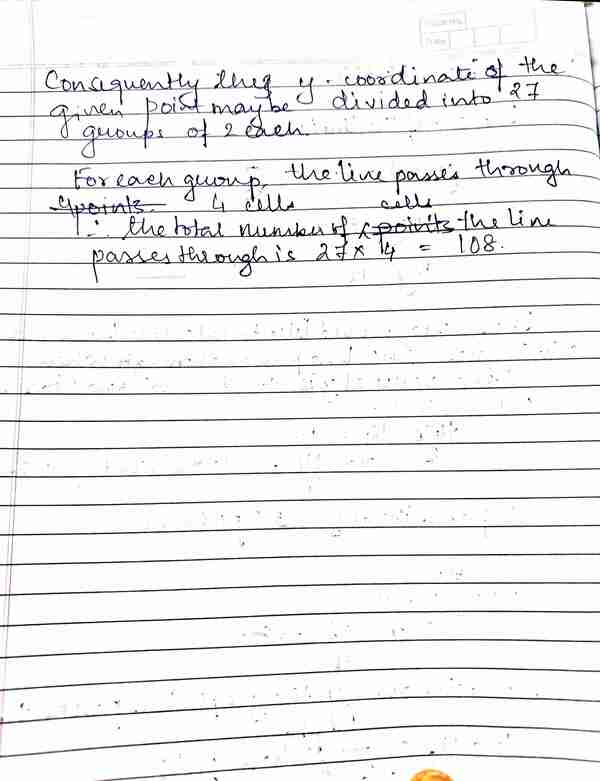 Consequently they y. coordinate of the
given point may be divided into 27
groups of 2 each.
For each group, the line passes through
4points 4 cells cells
∴ the total number of points the line
passes through is 27 × 4 = 108.